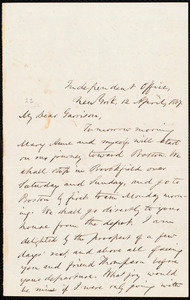 Independent Office,
New York, 12 April, 1867
My Dear Garrison,
To-morrow morning
Mary Anne and myself will start
on our journey toward Boston. We
shall stop in Brookfield over
Saturday and Sunday, and go to
Boston by first train Monday morn-
ing. We shall go directly to your
house from the depot. I am
delighted by the prospect of a few
days' rest, and above all, of seeing
you and friend Thompson before
your departure. What joy would
be mine if I were only going with